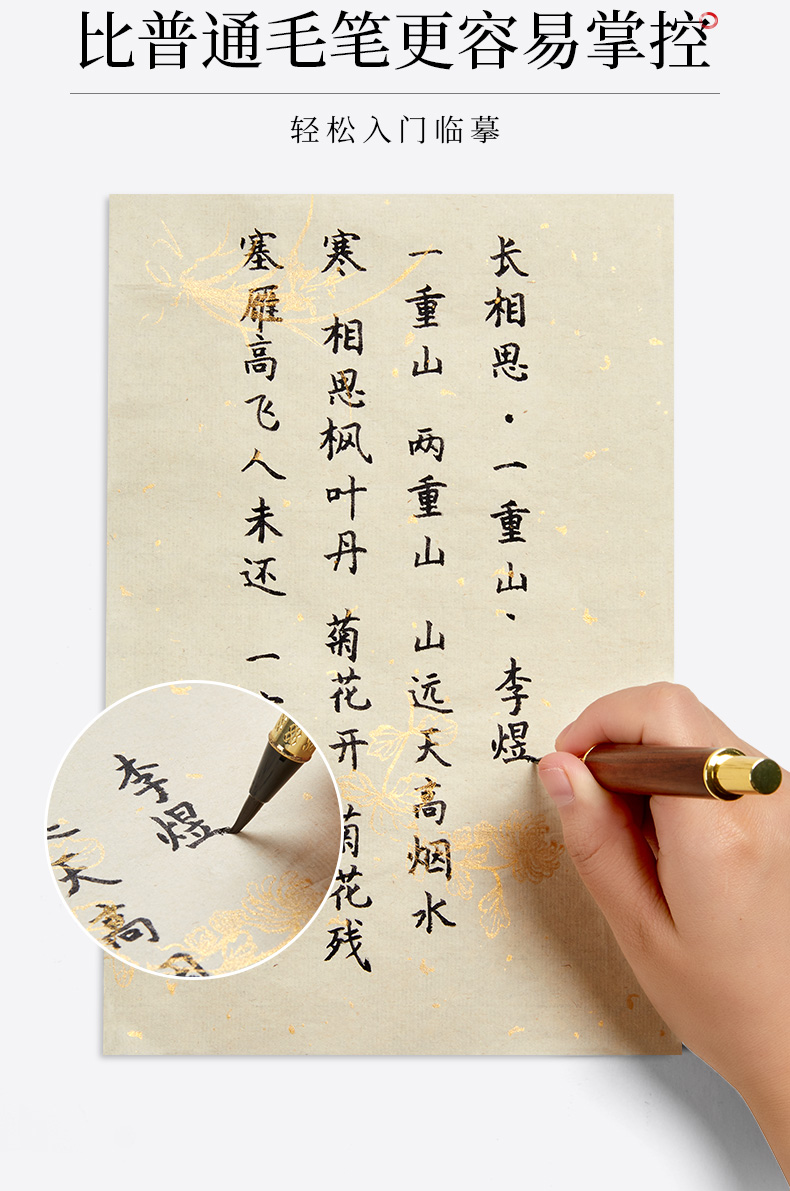 比普通毛笔更容易掌控
轻松入门临摹
长相思·一重山、李煜
一重山 两重山 山远天高烟水
寒 相思枫叶丹 菊花开 菊花残
塞雁高飞人未还 一
李煜
天高